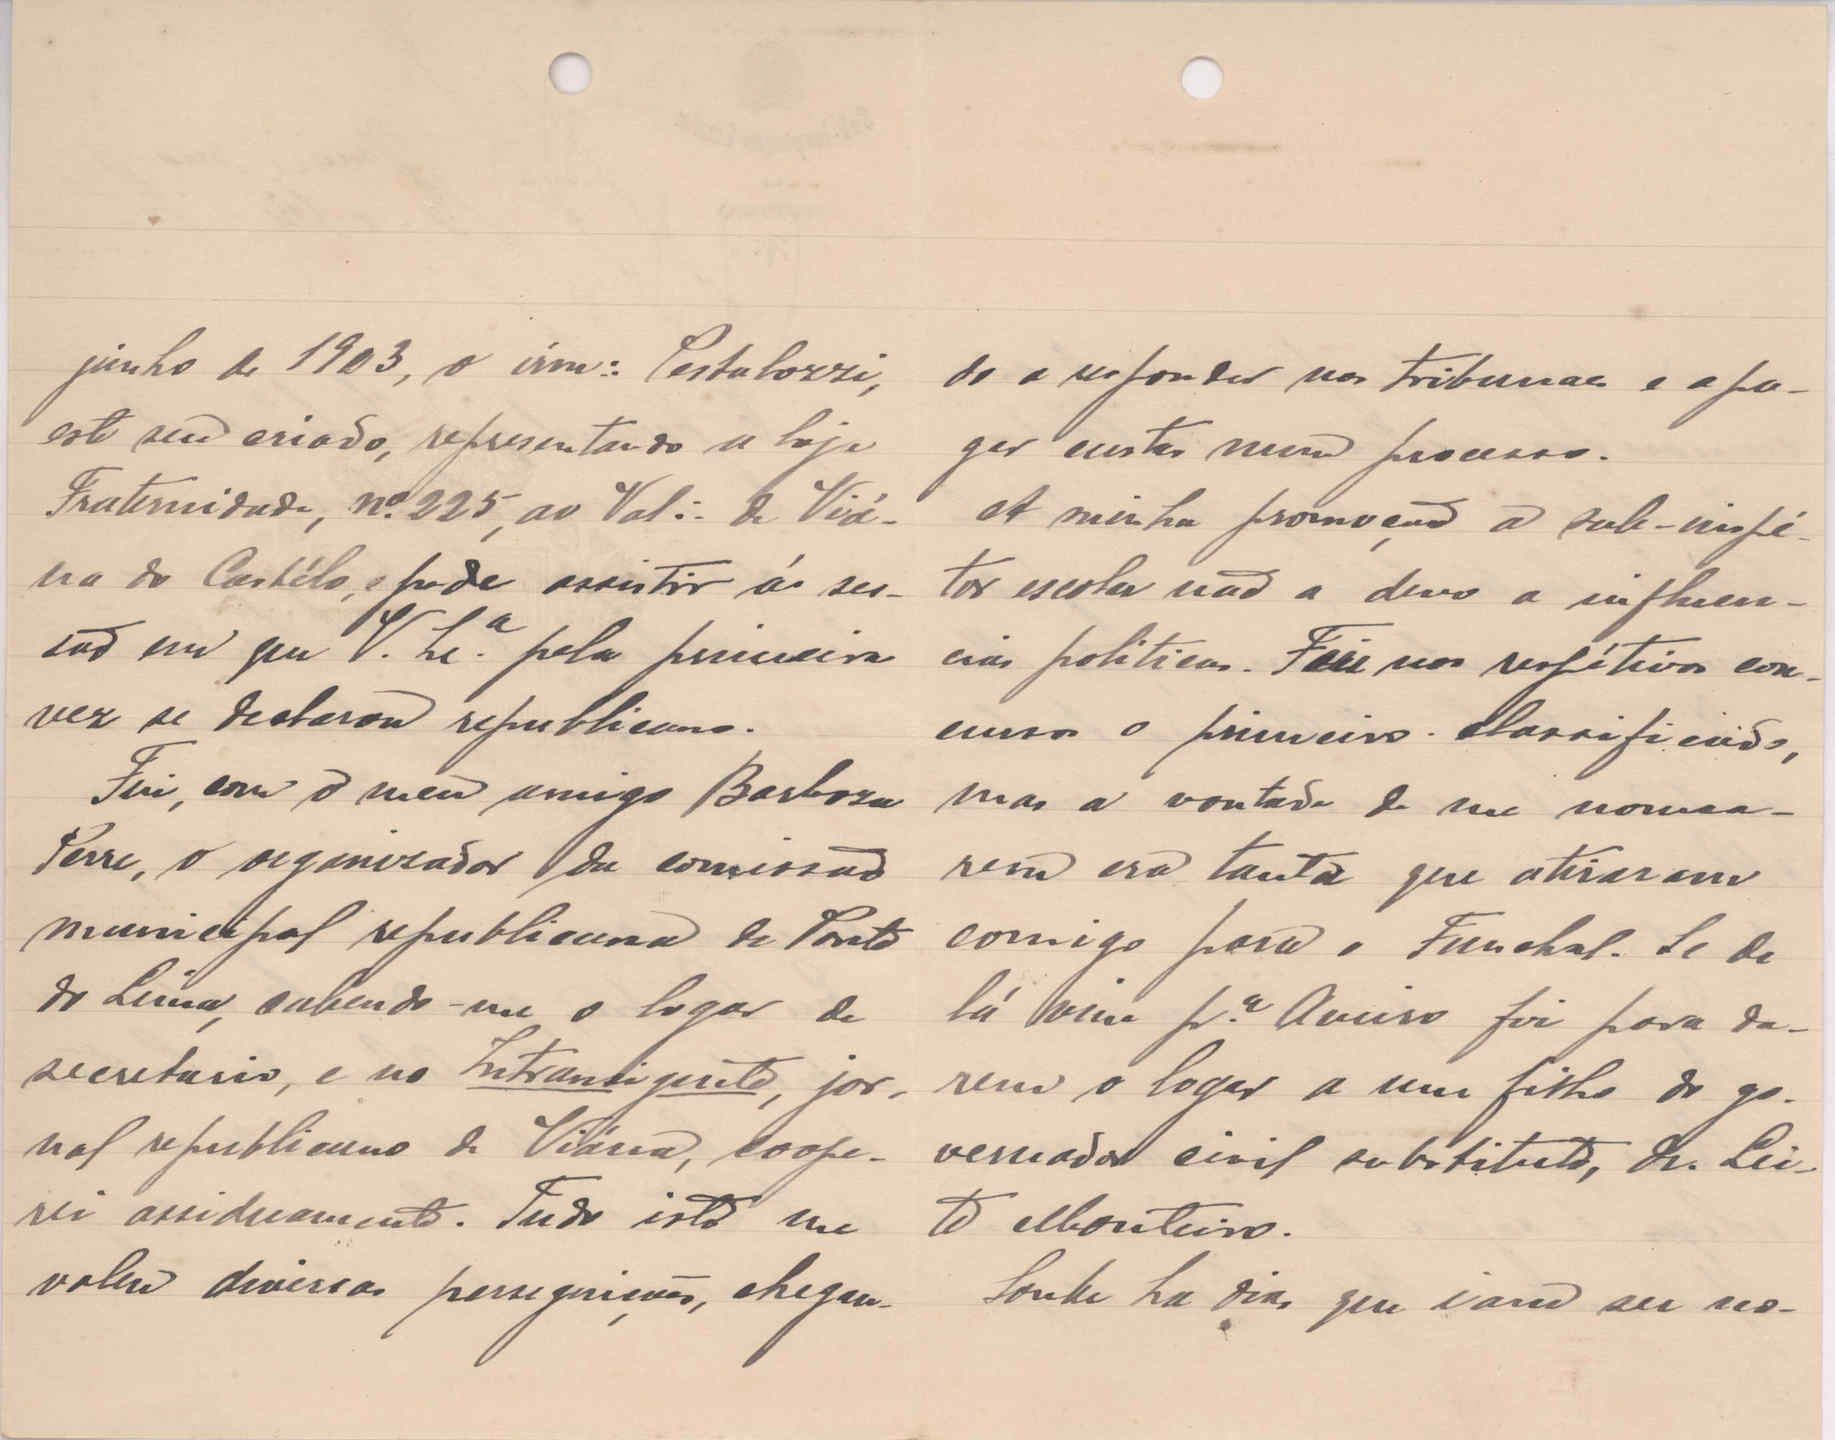 junho de 1903, o irm∴ Pestalozzi,
este seu criado, representando a loja
Fraternidade, nº 225, ao Val∴ de Viá-
na do Castélo, pode assistir á ses-
são em que V. Ex.ª pela primeira
vez se declarou republicano.
Fui, com o meu amigo Barboza
Perre, o organizador da comissão
municipal republicana de Ponte
do Lima, cabendo-me o logar de
secretario, e no Intransigente, jor-
nal republicano de Viána, coope-
rei assiduamente. Tudo isto me
valeu diversas perseguições, chegan-
do a responder nos tribunaes e a pa-
gar custas num processo.
A minha promoção a sub-inspé-
tor escolar não a devo a influen-
cias politicas. Fui nos respétivos con-
cursos o primeiro classificado,
mas a vontade de me nomea-
rem era tanta que atiraram
comigo para o Funchal. Se de
lá vim p.ª Aveiro foi para da-
rem o logar a um filho do go-
vernador civil substituto, dr. Lei-
te Monteiro.
Soube ha dias que iam ser no-